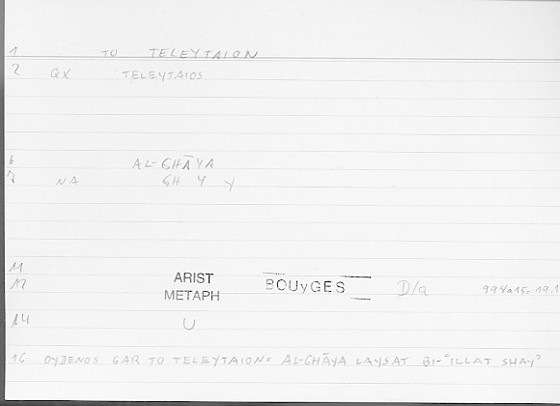 1 TO TELEYTAION
2 GX TELEYTAIOS
6 AL-GHĀYA
7 NA GH Y Y
11
12 ARIST METAPH BOUyGES D/a 994a15; 19.1
14 U
16 OYDENOS GAR TO TELEYTAION= AL-GHĀYA LAYSAT BI-ʿILLAT SHAYʾ